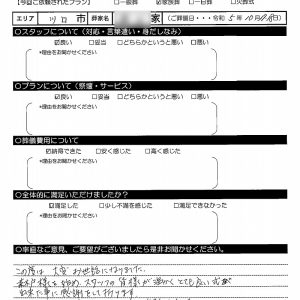 【今回ご依頼されたプラン】 □一般葬 ☑家族葬 □一日葬 □火葬式
エリア 川口市 葬家名 家 (ご葬儀日・・・令和5年10月 日)
○スタッフについて(対応・言葉遣い・身だしなみ)
☑良い □妥当 □どちらかというと悪い □悪い
*理由をお聞かせください。
○プランについて(祭壇・サービス)
☑良い □妥当 □どちらかというと悪い □悪い
*理由をお聞かせください。
○葬儀費用について
☑納得できた □安く感じた □高く感じた
*理由をお聞かせください。
○全体的に満足いただけましたか?
☑満足した □少し不満を感じた □満足できなかった
*理由をお聞かせください。
○率直なご意見、ご要望がございましたら是非お聞かせください。
この度は大変お世話になりました。
様を始め、スタッフの皆様が温かくとても良い
出来た事に感謝をしております。